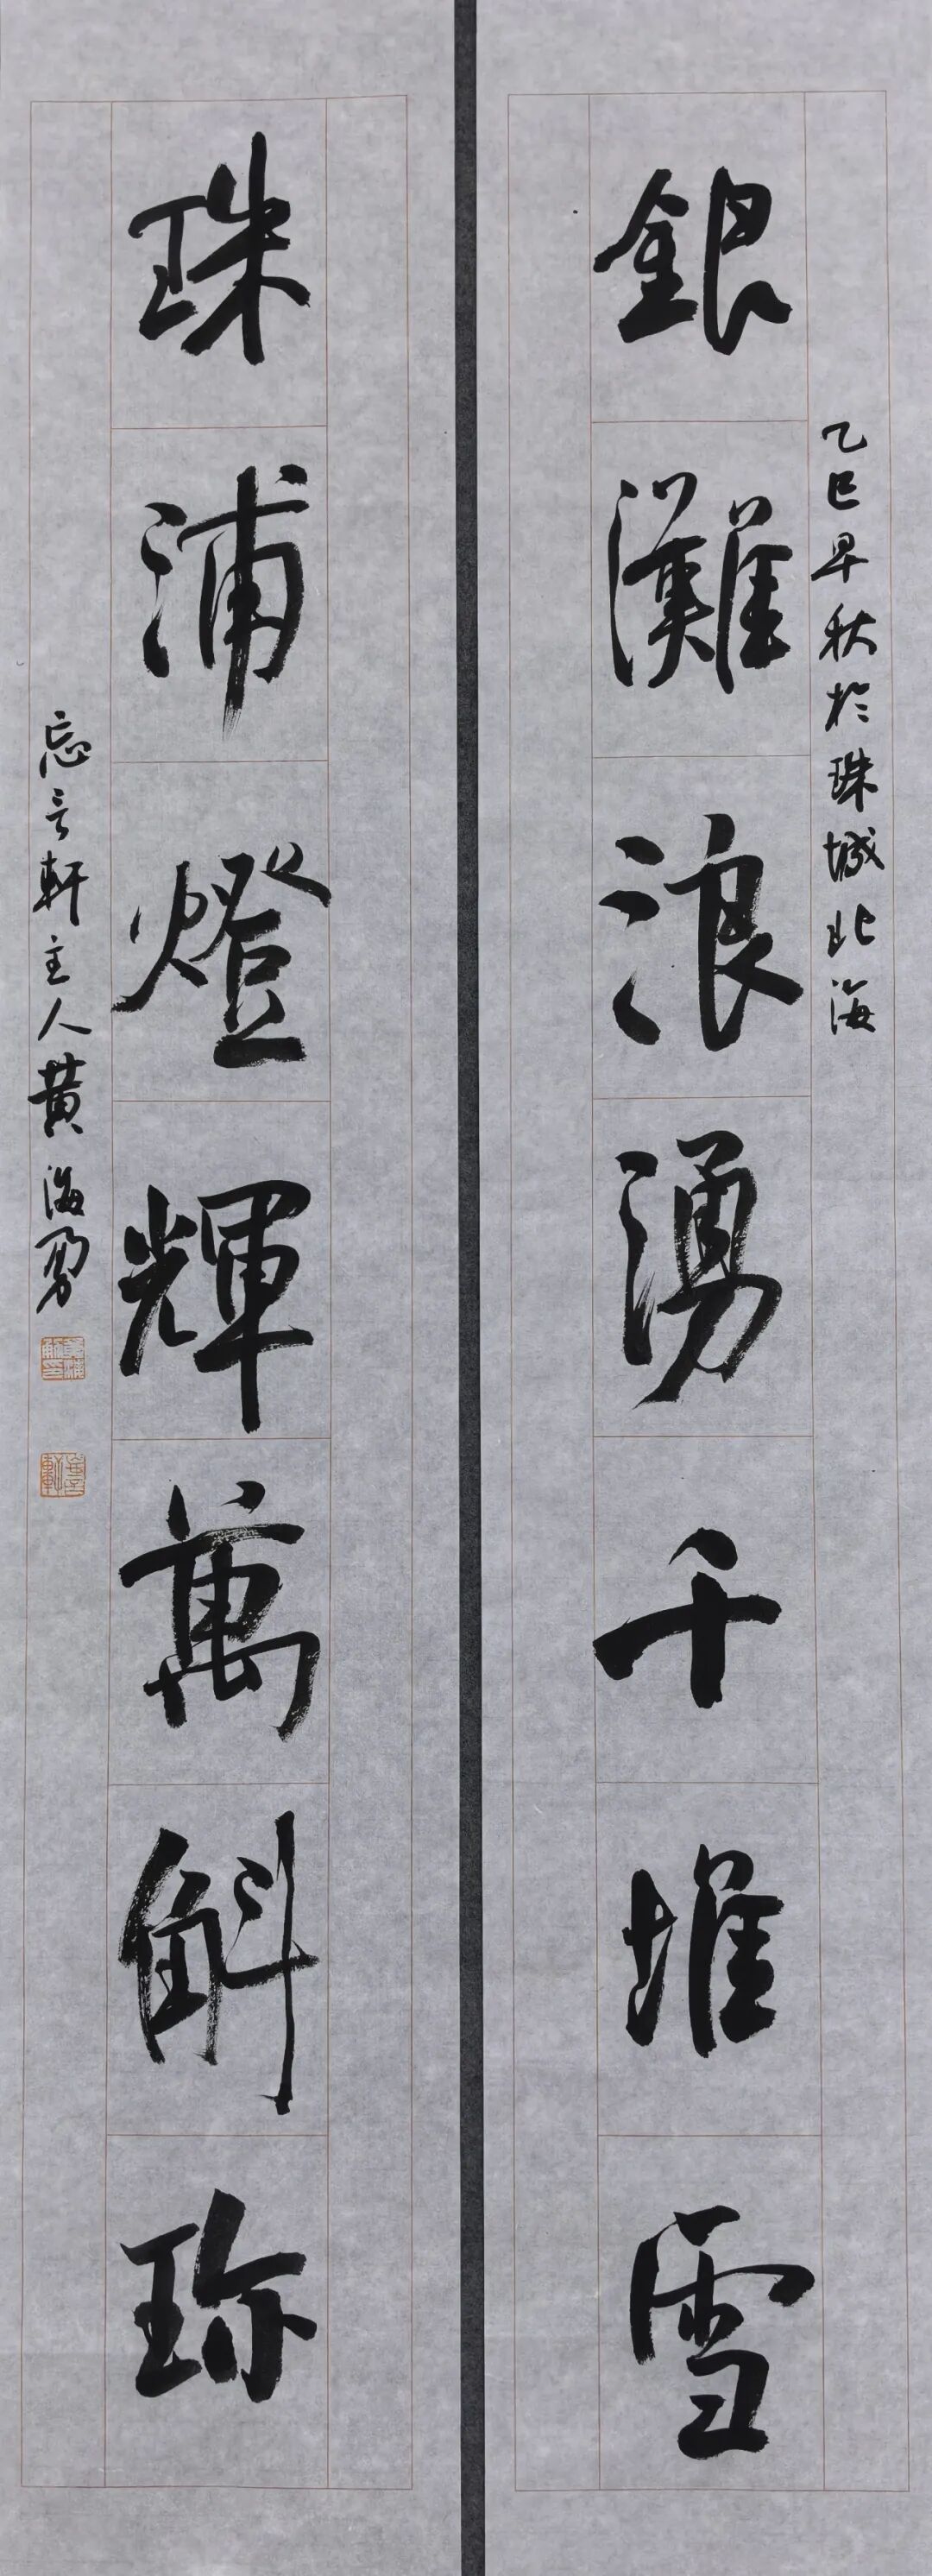 乙巳早秋於珠城北海
銀灘浪湧千堆雪
珠浦燈輝萬斛珎
忘言軒主人黄海勇